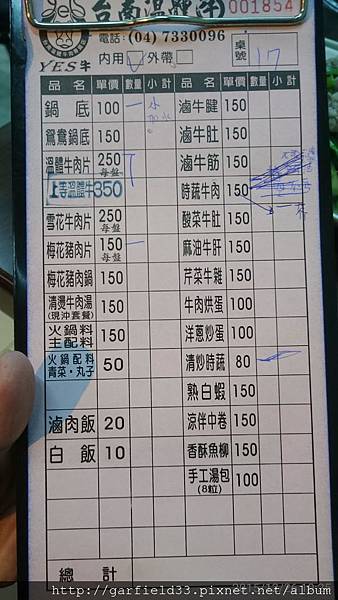 YeS 台南溫體牛 001854
電話:(04) 7330096
YES牛 內用 外帶 桌號 17
品名 單價 數量 小計 品名 單價 數量 小計
鍋底 100 一 滷牛腱 150
鴛鴦鍋底 150 滷牛肚 150
溫體牛肉片 250 每盤 滷牛筋 150
上等溫體牛350 時蔬牛肉 150
雪花牛肉片 250 每盤 酸菜牛肚 150
梅花豬肉片 150 每盤 一 麻油牛肝 150
梅花豬肉鍋 150 芹菜牛雜 150
清燙牛肉湯 (現沖套餐) 150 牛肉烘蛋 100
火鍋料 主配料 150 洋蔥炒蛋 100
火鍋配料 青菜・丸子 50 清炒時蔬 80
熟白蝦 150
滷肉飯 20 涼伴中卷 150
白飯 10 香酥魚柳 150
手工湯包 (8粒) 100
總計
http://garfield33.pixnet.net/album